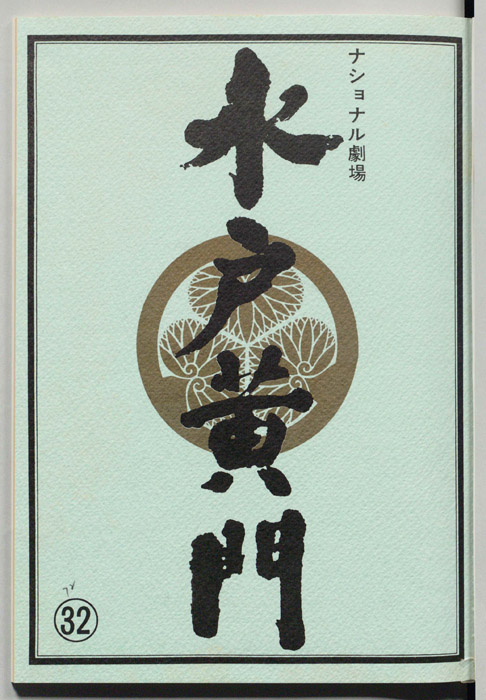 ナショナル劇場
水戸黄門
32